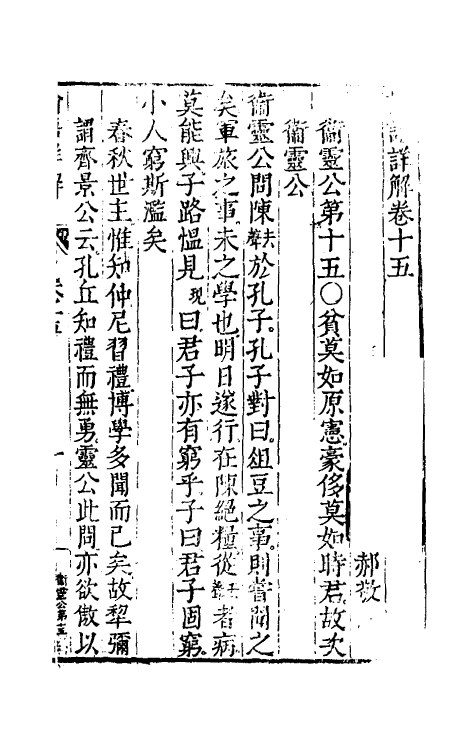 語詳解卷十五
郝敬
衞靈公第十五○貧莫如原憲豪侈莫如時君故次
衞靈公
衞靈公問陳去聲於孔子孔子對曰俎豆之事則嘗聞之
矣軍旅之事未之學也明日遂行在陳絕糧從去聲者病
莫能興子路慍見現曰君子亦有窮乎子曰君子固窮
小人窮斯濫矣
春秋世主惟知仲尼習禮博學多聞而已矣故犂彌
謂齊景公云孔丘知禮而無勇靈公此問亦欲傲以
詳解
卷十五
一
衞靈公第十五